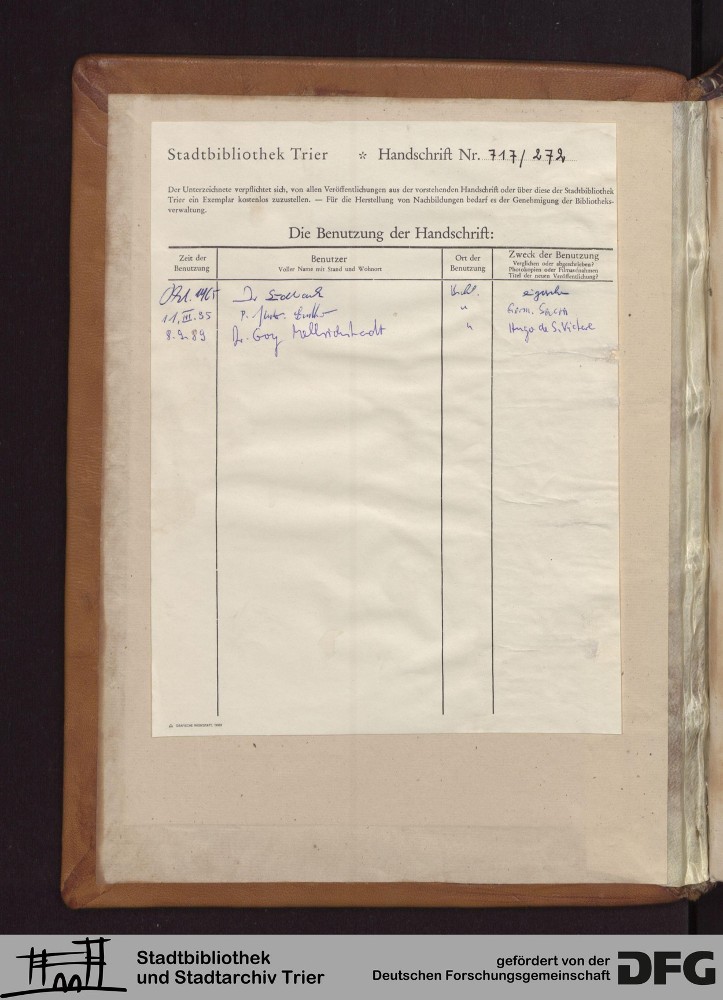 Stadtbibliothek Trier ☆ Handschrift Nr. 717/272
Der Unterzeichnete verpflichtet sich, von allen Veröffentlichungen aus der vorstehenden Handschrift oder über diese der Stadtbibliothek
Trier ein Exemplar kostenlos zuzustellen. — Für die Herstellung von Nachbildungen bedarf es der Genehmigung der Bibliotheks-
verwaltung.
Die Benutzung der Handschrift:
Zeit der
Benutzung
Benutzer
Voller Name mit Stand und Wohnort
Ort der
Benutzung
Zweck der Benutzung
Verglichen oder abgeschrieben?
Photokopien oder Filmaufnahmen
Titel der neuen Veröffentlichung?
1965 Dr
11. III. 85 P. " Germ. Sacra
8.9.89 Dr. Goy " Hugo de S. Victore
Stadtbibliothek
und Stadtarchiv Trier
gefördert von der
Deutschen Forschungsgemeinschaft
DFG